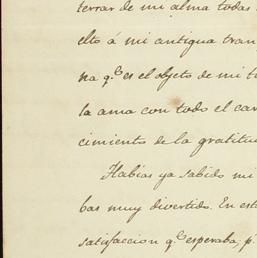 terrar de mi alma todas
elto á mi antigua tran
na q.e es el objeto de mi t
la ama con todo el car
cimiento de la gratitu
Habias ya sabido mi
bas muy divertido. En est
satisfaccion q.e esperaba; p.